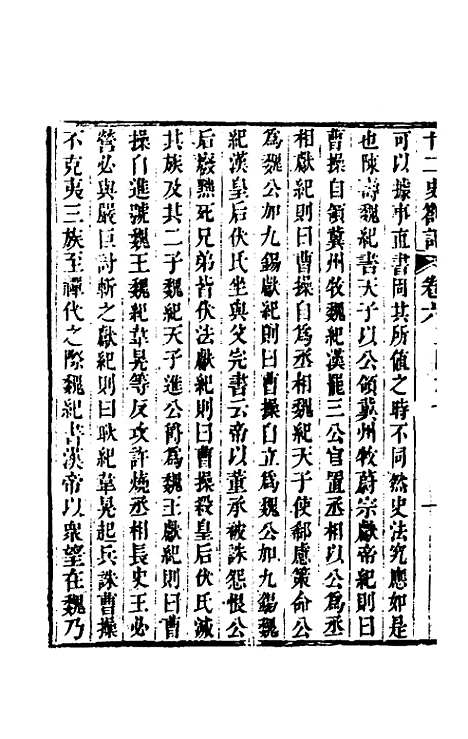 十二史劄記 卷六
可以據事直書固其所值之時不同然史法究應如是
也陳壽魏紀書天子以公領冀州牧蔚宗獻帝紀則曰
曹操自領冀州牧魏紀漢罷三公官置丞相以公為丞
相獻紀則曰曹操自為丞相魏紀天子使郗慮策命公
為魏公加九錫獻紀則曰曹操自立為魏公加九錫魏
紀漢皇后伏氏坐與父完書云帝以董承被誅怨恨公
后廢黜死兄弟皆伏法獻紀則曰曹操殺皇后伏氏滅
其族及其二子魏紀天子進公爵為魏王獻紀則曰曹
操自進號魏王魏紀韋晃等反攻許燒丞相長史王必
營必與嚴匡討斬之獻紀則曰耿紀韋晃起兵誅曹操
不克夷三族至禪代之際魏紀書漢帝以眾望在魏乃